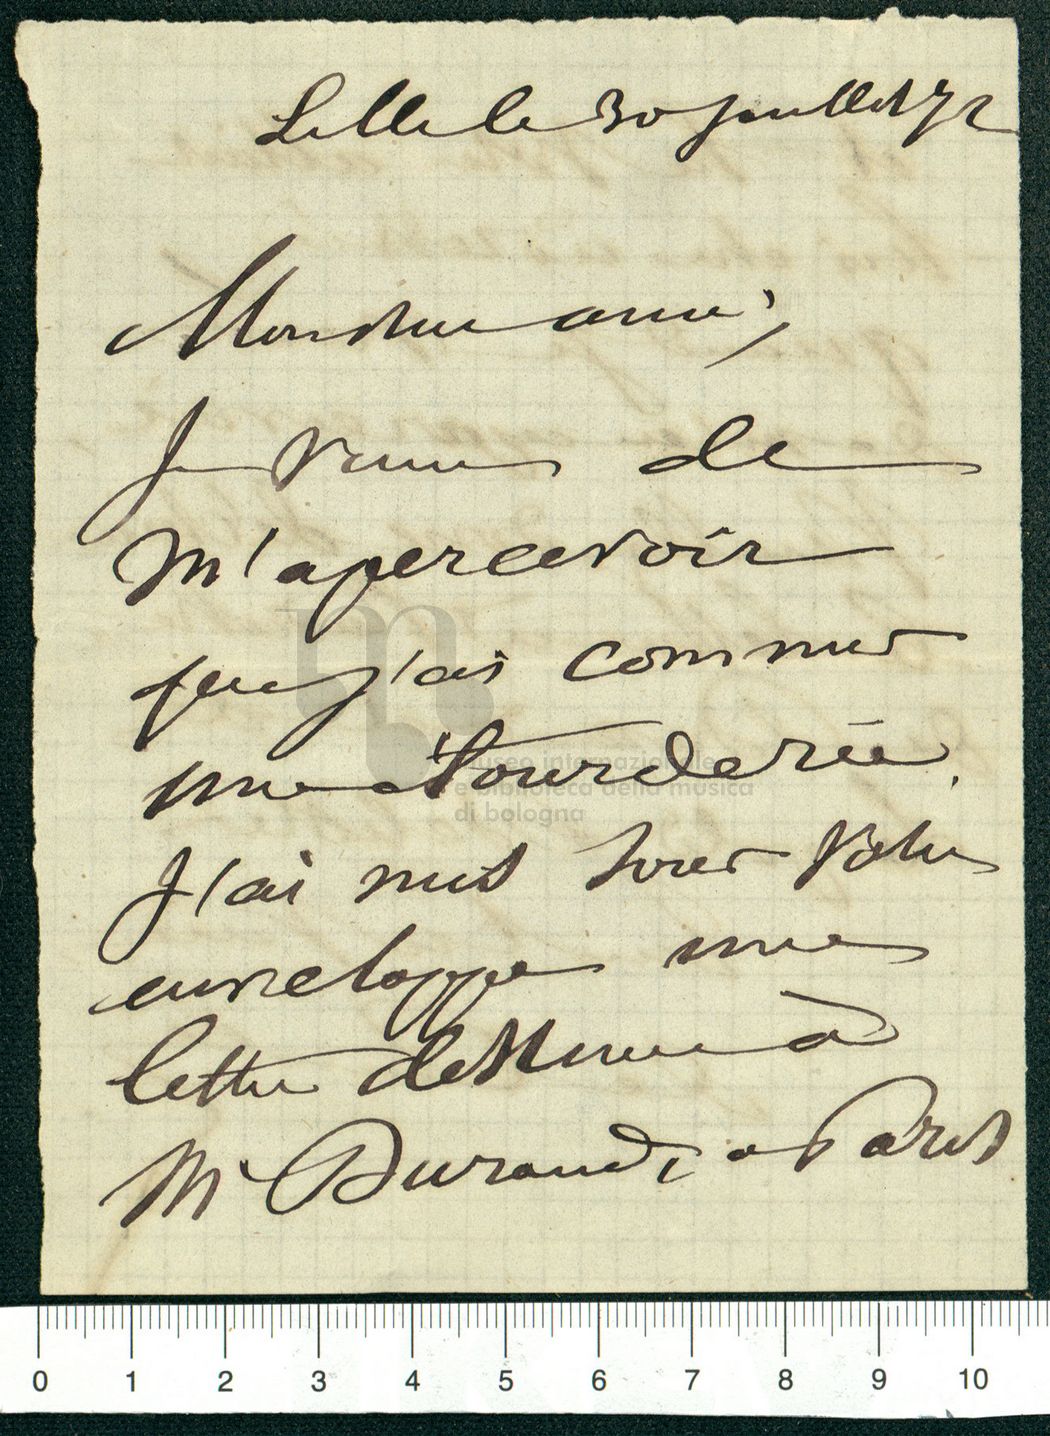 Lille le 30 Juillet 72
Mon cher ami,
Je viens de
m'apercevoir
que j'ai commis
une étourderie.
J'ai mis sous votre
enveloppe une
lettre destinée à
Mr Durand, à Paris
museo internazionale
e biblioteca della musica
di bologna
0 1 2 3 4 5 6 7 8 9 10